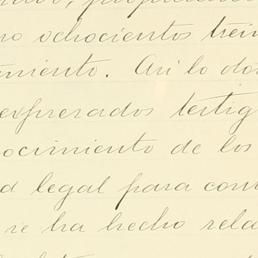 no ochocientos trein
amiento. Así lo dos
expresados testig
nocimiento de los
d legal para con
se ha hecho rela